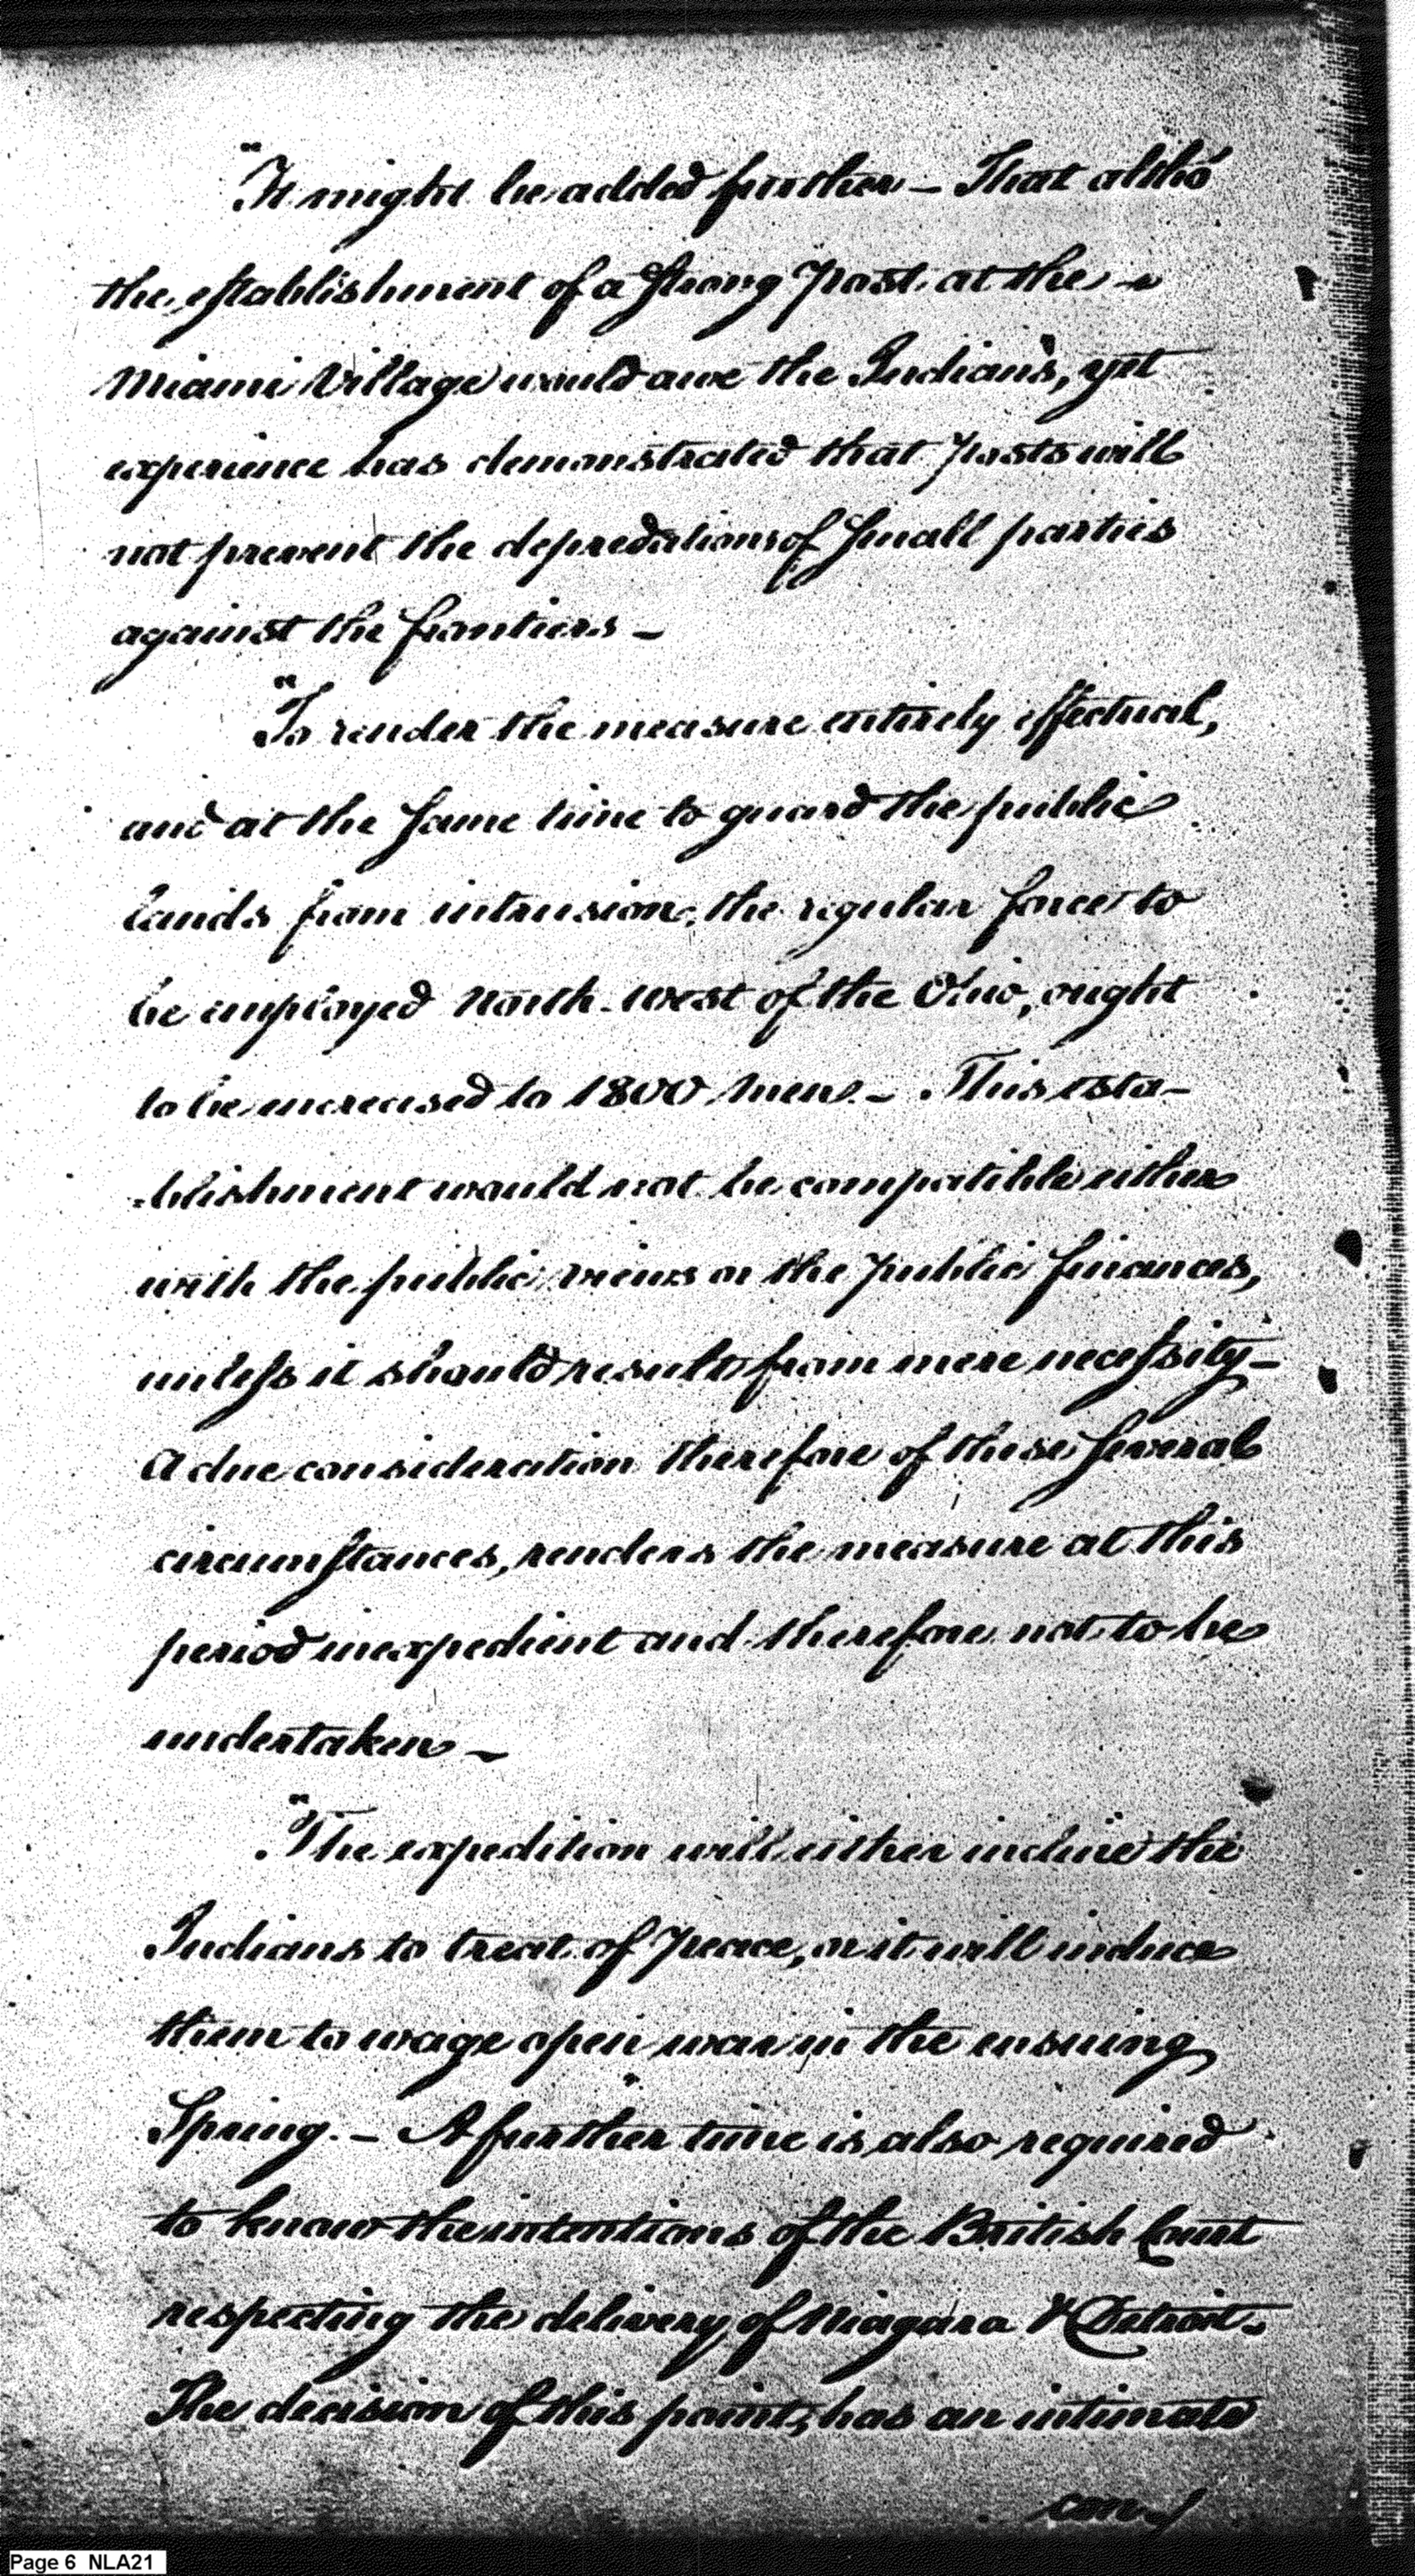 "It might be added further — That altho'
the establishment of a strong Post at the
Miami Village would awe the Indians, yet
experience has demonstrated that Posts will
not prevent the depredations of small parties
against the frontiers —
"To render the measure entirely effectual,
and at the same time to guard the public
lands from intrusion, the regular force to
be employed North-west of the Ohio, ought
to be increased to 1800 Men. — This esta-
-blishment would not be compatible either
with the public views or the public finances,
unless it should result from mere necessity —
A due consideration therefore of these several
circumstances, renders the measure at this
period inexpedient and therefore not to be
undertaken —
"The expedition will either incline the
Indians to treat of Peace, or it will induce
them to wage open war in the ensuing
Spring. — A further time is also required
to know the intentions of the British Court
respecting the delivery of Niagara & Detroit.
The decision of this point, has an intimate
con
Page 6 NLA21